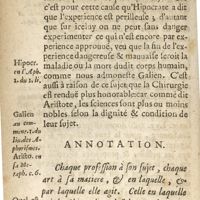 c'est pour cette cause qu'Hipocrate a dit
que l'experience est perilleuse, d'autant
que sur iceluy on ne peut sans danger
experimenter ce qui n'est encore par ex-
perience approuvé, veu que la fin de l'ex-
perience dangereuse & mauvaise seroit la
maladie ou la mort dudit corps humain,
comme nous admoneste Galien. C'est
aussi à raison de ce sujet que la Chirurgie
est rendue plus honorable: car comme dit
Aristote, les sciences sont plus ou moins
nobles selon la dignité & condition de
leur sujet.
Hipocr.
en l'Aph.
1. du 1. li.
Galien
au com-
ment. 1. du
liu. des A-
phorismes.
Aristo. en
la Me-
taph. c. 6.
ANNOTATION.
Chaque profession à son sujet, chaque
art à sa matiere, & en laquelle, &
par laquelle elle agit. Celle en laquelle